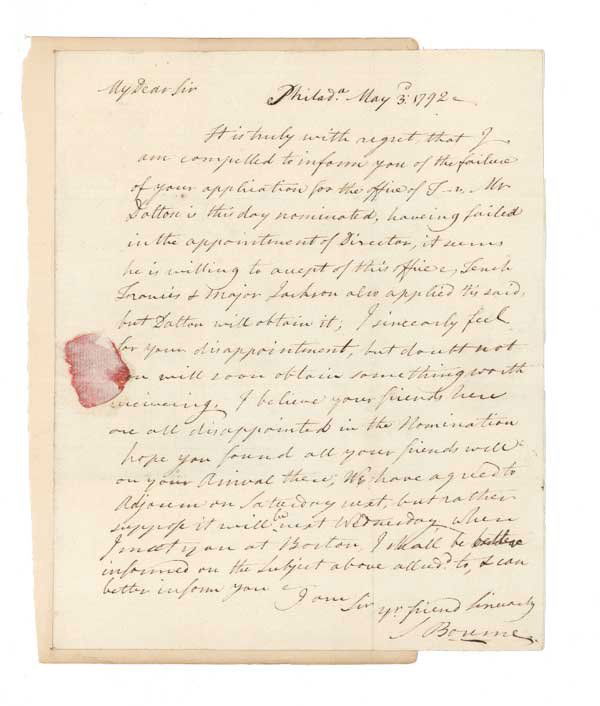 My Dear Sir
Philad.a May 3.d 1792
It is truly with regret, that I
am compelled to inform you of the failure
of your application for the office of T—r. Mr
Dalton is this day nominated, haveing failed
in the appointment of Director, it seems
he is willing to accept of this office, Tench
Francis & Major Jackson also applied tis said,
but Dalton will obtain it; I sincearly feel
for your disappointment, but doubt not
you will soon obtain something worth
receiveing. I believe your friends here
are all disappointed in the Nomination
hope you found all your friends well
on your Arrival there; We have agreed to
Adjourn on Saturday next, but rather
suppose it will be next Wednesday when
I meet you at Boston, I shall be better
informed on the subject above allud.d to, & can
better inform you
I am Sir yr. friend Sincearly
S Bourne